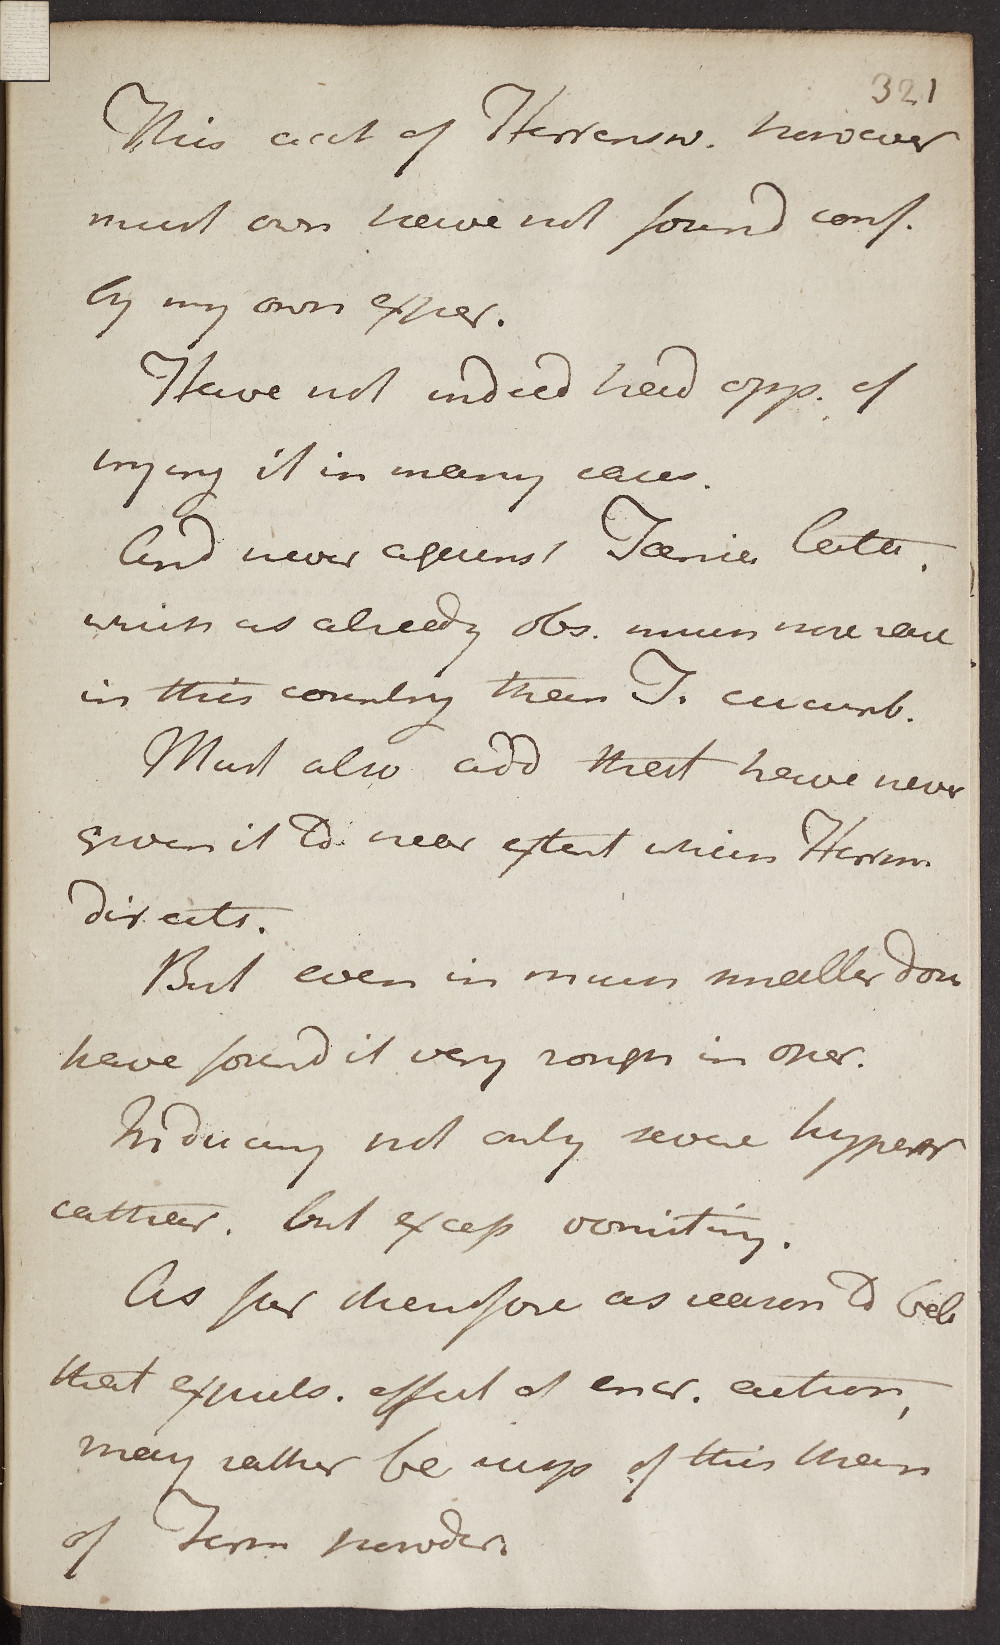 321
This acct of Herrensw. however
must own have not found conf.
by my own exper.
Have not indeed had opp. of
trying it in many cases.
And never against Tænia lata,
which as already obs. much more rare
in this country than T. cucurb.
Must also add that have never
given it to near extent which Herrn
directs.
But even in much smaller dose
have found it very rough in oper.
Inducing not only severe hyper
cathar. but excess vomiting.
As far therefore as reason to bel
that expuls. effect of action,
may rather be susp of this than
of Fern powder.